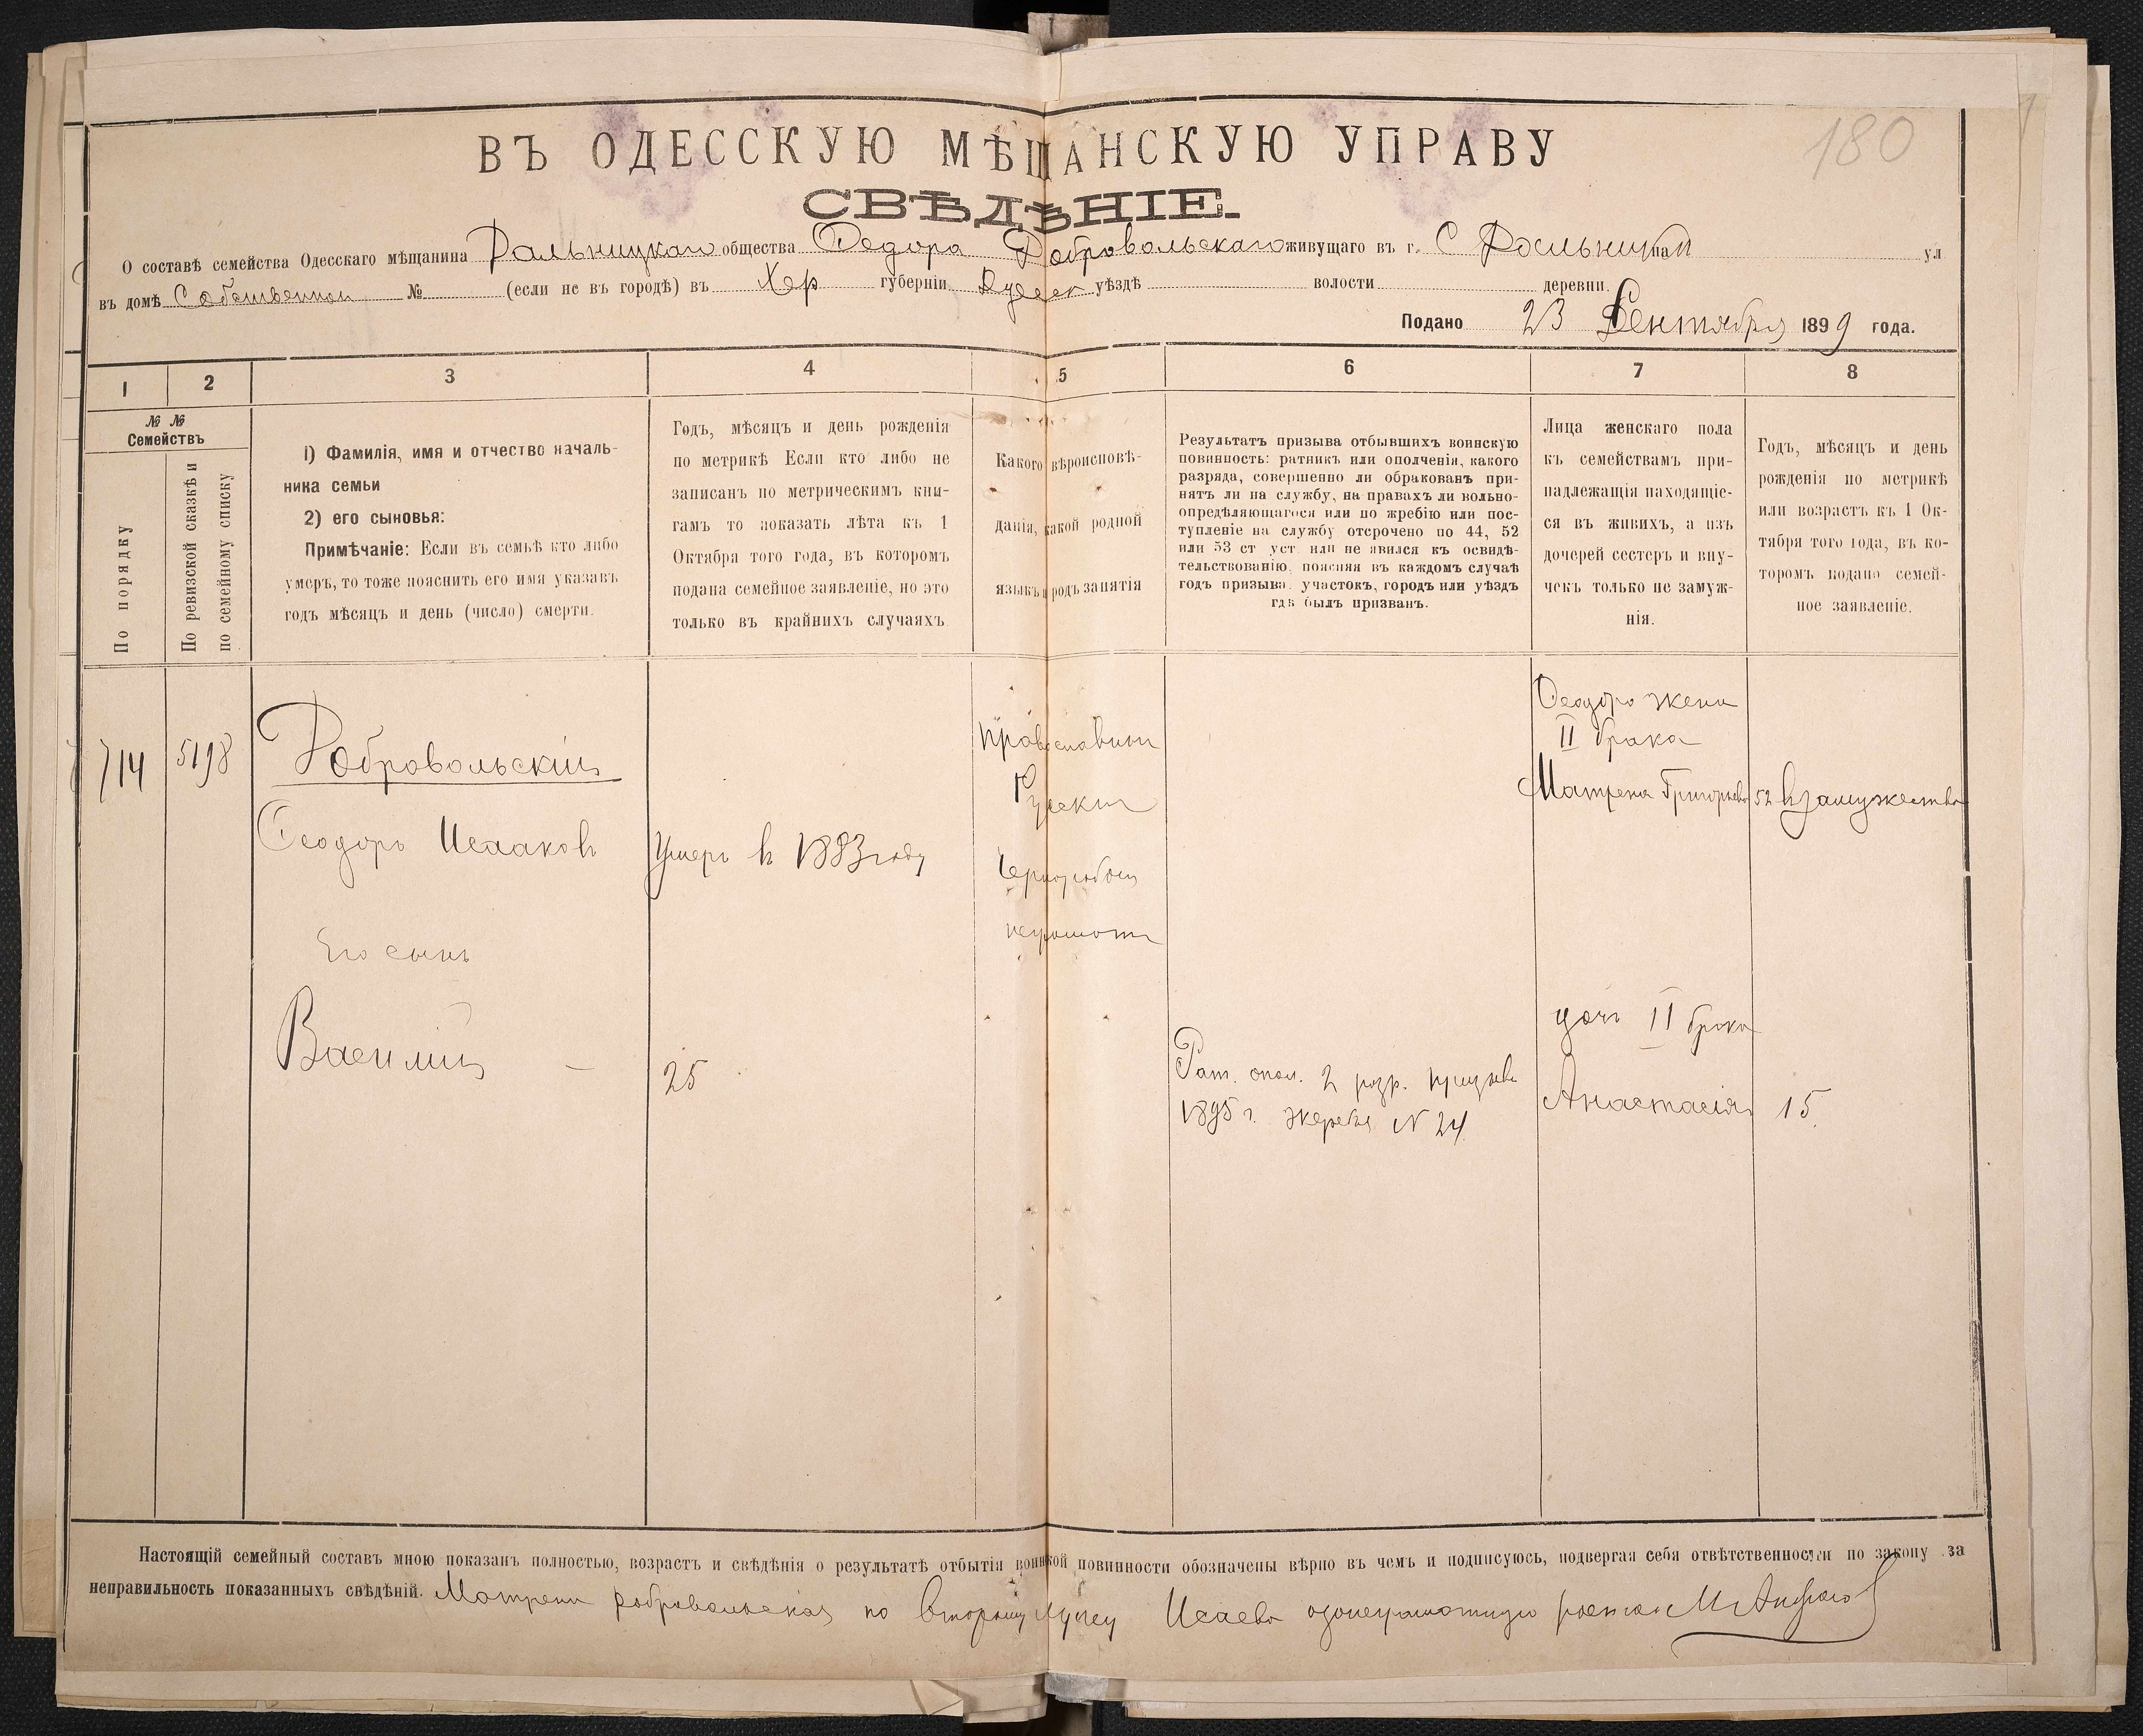 180
ВЪ ОДЕССКУЮ МѢЩАНСКУЮ УПРАВУ
СВѢДѢНІЕ.
О составѣ семейства Одесскаго мѣщанина Дальницкаго общества Федора Добровольскаго живущаго въ г. С Дальникъ на ул
въ домѣ Собственном № (если не въ городѣ) въ Хер губерніи Одесск уѣздѣ волости деревни
Подано 23 Сентября 1899 года.
1 2 3 4 5 6 7 8
№ №
Семействъ
По порядку
По ревизской сказкѣ и
по семейному списку
1) Фамилія, имя и отчество началь-
ника семьи
2) его сыновья:
Примѣчаніе: Если въ семьѣ кто либо
умеръ, то тоже пояснить его имя указавъ
годъ мѣсяцъ и день (число) смерти.
Годъ, мѣсяцъ и день рожденія
по метрикѣ Если кто либо не
записанъ по метрическимъ кни-
гамъ то показать лѣта къ 1
Октября того года, въ которомъ
подана семейное заявленіе, но это
только въ крайнихъ случаяхъ
Какого вѣроисповѣ-
данія, какой родной
языкъ и родъ занятія
Результатъ призыва отбывшихъ воинскую
повинность: ратникъ или ополченія, какого
разряда, совершенно ли обракованъ при-
нятъ ли на службу, на правахъ ли вольно-
опредѣляющагося или по жребію или пос-
тупленіе на службу отсрочено по 44, 52
или 53 ст уст или не явился къ освидѣ-
тельствованію, поясняя въ каждомъ случаѣ
годъ призыва, участокъ, городъ или уѣздъ
гдѣ былъ призванъ.
Лица женскаго пола
къ семействамъ при-
надлежащія находящіе-
ся въ живыхъ, а изъ
дочерей сестеръ и вну-
чекъ только не замуж-
нія.
Годъ, мѣсяцъ и день
рожденія по метрикѣ
или возрастъ къ 1 Ок-
тября того года, въ ко-
торомъ подано семей-
ное заявленіе.
714 5198 Добровольскій
Феодоръ Исааковъ
Умеръ в 1883 году
Его сынъ
Василій – 25
Православный
Русскій
неграмотн
Рат. опол. 2 разр. призыва
1895 г. жеребья № 24
Феодора жена
II брака
Матрена Григорьева 52 взамужества
дочь II брака
Анастасія 15
Настоящій семейный составъ мною показанъ полностью, возрастъ и свѣдѣнія о результатѣ отбытія воинской повинности обозначены вѣрно въ чемъ и подписуюсь, подвергая себя отвѣтственности по закону за
неправильность показанныхъ свѣдѣній. Матрена Добровольская по второму мужу Исаева